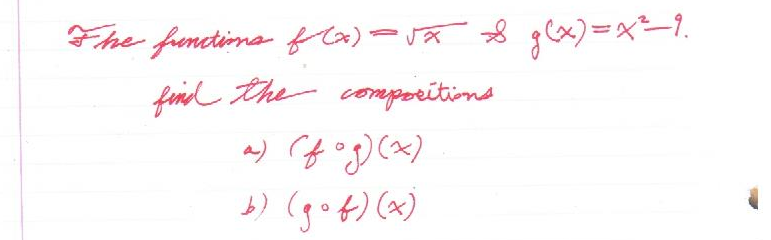 The functions f(x) = √x & g(x) = x²-9.
find the compositions
a) (f∘g)(x)
b) (g∘f)(x)